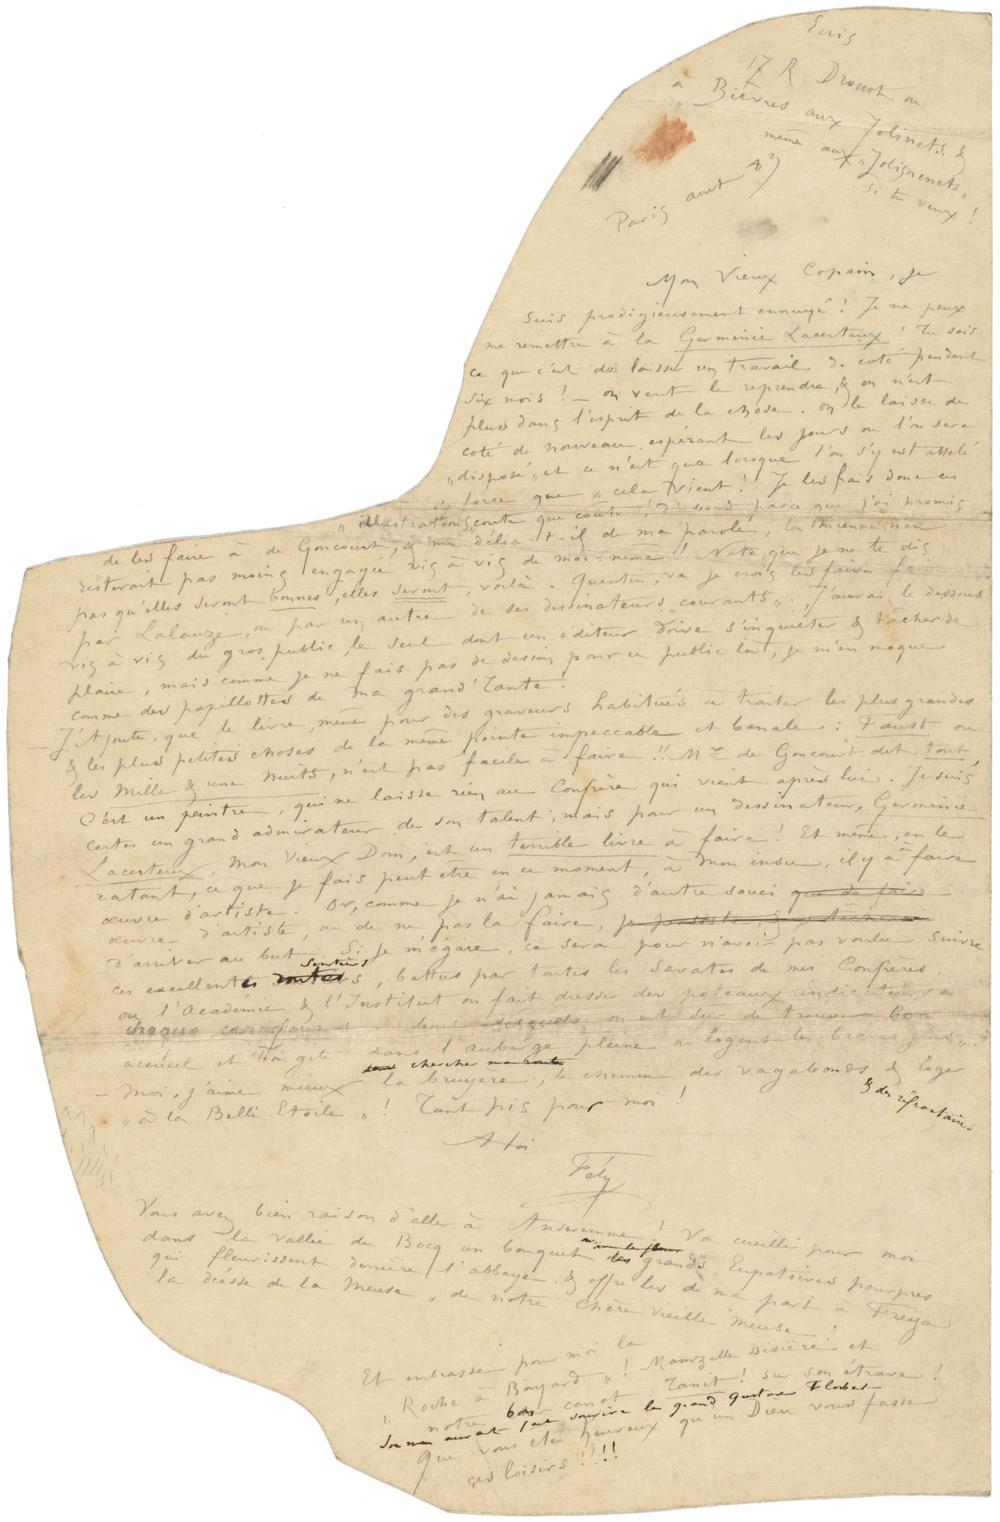 Ecris
17 R. Drouot ou
à Bièvres aux Jolinets, &
même aux "Jolignenets"
si tu veux !
Paris août 87
Mon Vieux Copain, je
suis prodigieusement ennuyé ! Je ne peux
me remettre à la Germinie Lacerteux ! Tu sais
ce que c'est de laisser un travail de coté pendant
six mois ! — on veut le reprendre, & on n'est
plus dans l'esprit de la chose. on le laisse de
coté de nouveau, espérant les jours où l'on sera
„disposé„ et ce n'est que lorsque l'on s'y est attelé
force que „cela vient ! Je les fais donc ces
„illustrations coute que coute ! parce que j'ai promis
de les faire à de Goncourt, & me délia-t-il de ma parole, la mienne n'en
resterait pas moins engagée vis à vis de moi-même ! Note que je ne te dis
pas qu'elles seront bonnes, elles seront, voilà. Quantin, va je crois les faire
par Lalauze, ou par un autre de ses dessinateurs „courants„. J'aurai le dessous
vis à vis du gros public, le seul dont un éditeur doive s'inquiéter & tâcher de
plaire, mais comme je ne fais pas de dessin pour ce public là, je m'en moque
comme des papillottes de ma grand'Tante !
J'Ajoute que le livre, même pour des graveurs habitués à traiter les plus grandes
& les plus petites choses de la même pointe impeccable et banale : Faust ou
les Mille & une Nuits, n'est pas facile à faire !! Mr de Goncourt dit tout,
C'est un peintre, qui ne laisse rien au Confrère qui vient après lui. Je suis
certes un grand admirateur de son talent ; mais pour un dessinateur, Germinie
Lacerteux, Mon Vieux Dom, est un terrible livre à faire ! Et même, en le
ratant, ce que je fais peut être en ce moment, à mon insu, il y a à faire
œuvre d'artiste. Or, comme je n'ai jamais d'autre souci que de faire
œuvre d'artiste, ou de ne pas la faire,
d'arriver au but. Si je m'égare, ce sera pour n'avoir pas voulu suivre
ces excellents sentiers routes, battus par toutes les savates de mes Confrères,
où l'Académie & l'Institut on fait dresser des poteaux indicateurs à
chaque carrefour : on est sur de trouver bon
accueil et bon gîte dans l'auberge pleine où logent les „braves gens„.
— Moi, j'aime mieux chercher ma route la bruyère, le chemin des vagabonds & loger
& des réfractaires
„à la Belle Etoile„ ! Tant pis pour moi !
A toi
Fély
Vous avez bien raison d'aller à Anseremme ! Va cueillir pour moi
dans la vallée du Bocq un bouquet des grands Eupatoires pourpres
qui fleurissent derrière l'abbaye & offre les de ma part à Freÿa
la déesse de la Meuse, de notre chère vieille Meuse !
Et embrasse pour moi la
„Roche à Bayard„ ! Mamzelle Disière et
notre bon canot Tanit ! sur son étrave !
Son nom aurait fait sourire le grand Gustave Flobert
Que vous etes heureux qu'un Dieu vous fasse
ces loisirs !!!!